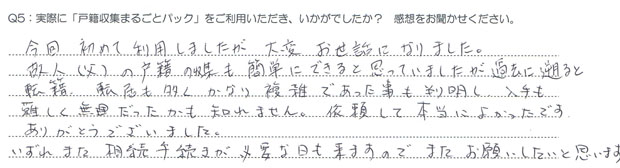 Q5：実際に「戸籍収集まるごとパック」をご利用いただき、いかがでしたか？ 感想をお聞かせください。
今回 初めて利用しましたが 大変 お世話になりました。
故人(父)の戸籍収集も簡単にできると思っていましたが過去に遡ると
転籍、転居も多く かなり複雑であった事も判明し 入手も
難しく無理だったかも知れません。依頼して本当によかったです
ありがとうございました。
いずれまた 相続手続きが必要な日も来ますので またお願いしたいと思います